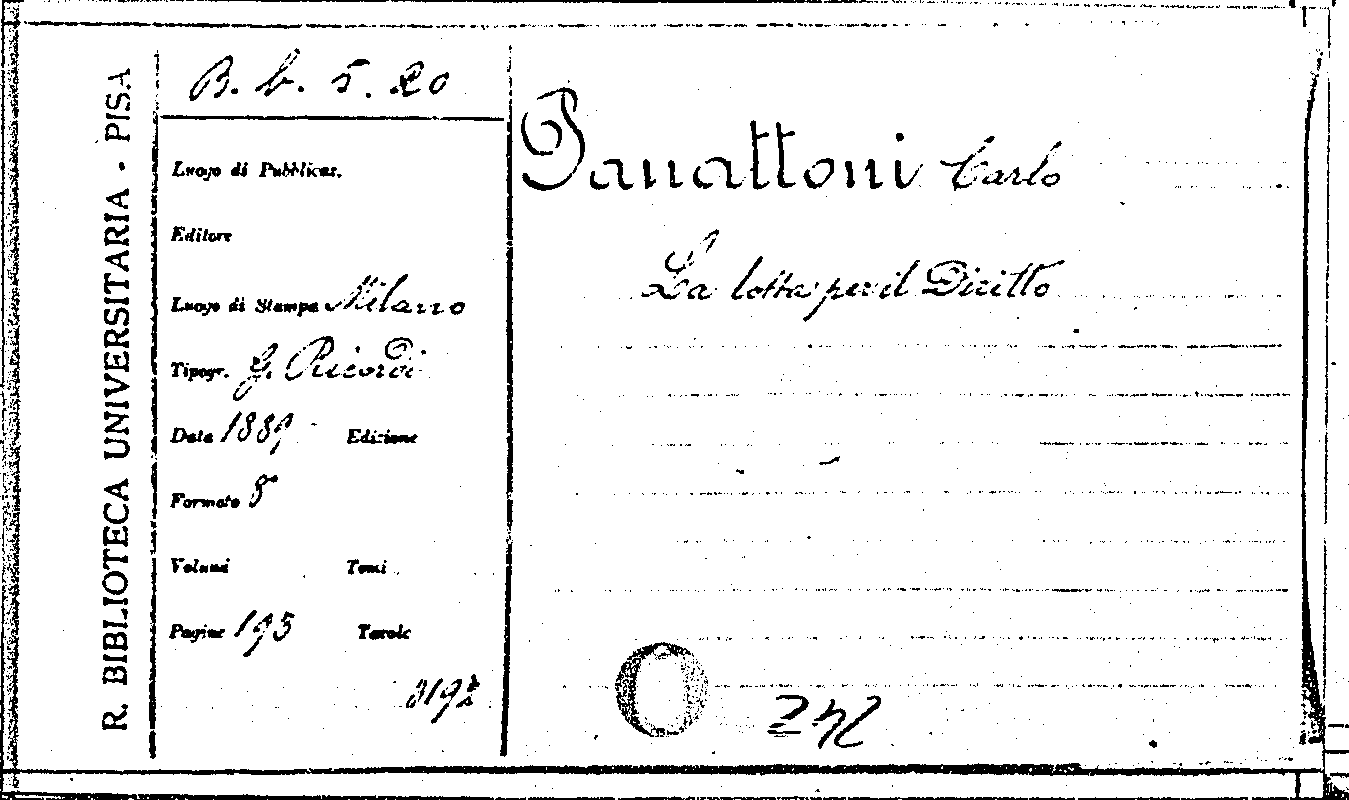 R. BIBLIOTECA UNIVERSITARIA - PISA
B. b. 5. 20
Luogo di Pubblicaz.
Editore
Luogo di Stampa Milano
Tipogr. G. Ricordi
Data 1889 Edizione
Formato 8°
Volumi Tomi
Pagine 195 Tavole
Panattoni Carlo
La lotta per il Diritto